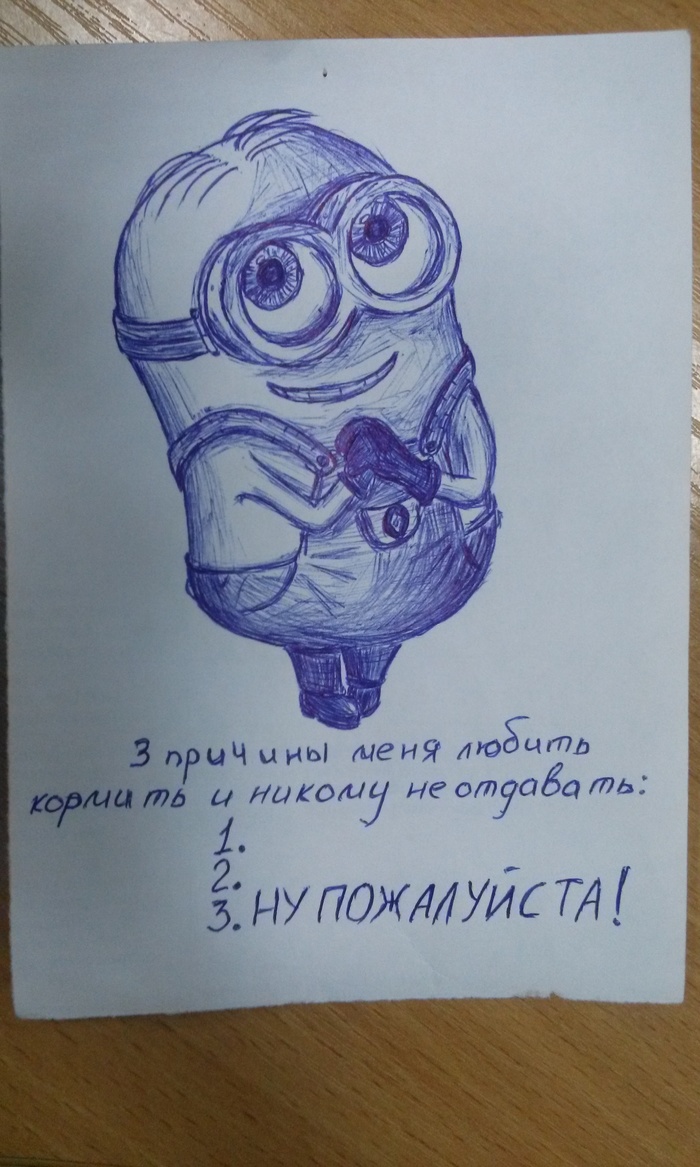 3 причины меня любить
кормить и никому не отдавать:
1.
2.
3. НУ ПОЖАЛУЙСТА!